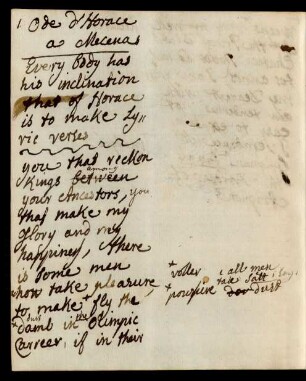 1 Ode d'Horace
a Mecenas
Every body has
his inclination
that of Horace
is to make Ly"
ric verses
you that reckon
among
Kings between
your Ancestors, you
that make my
glory and my
happiness, there
is some men
who take plearure,
to make + fly the
dust
+ damb in the Olimpic
Carreer; if in their
+ roller all men
take
+ powsure dov dust